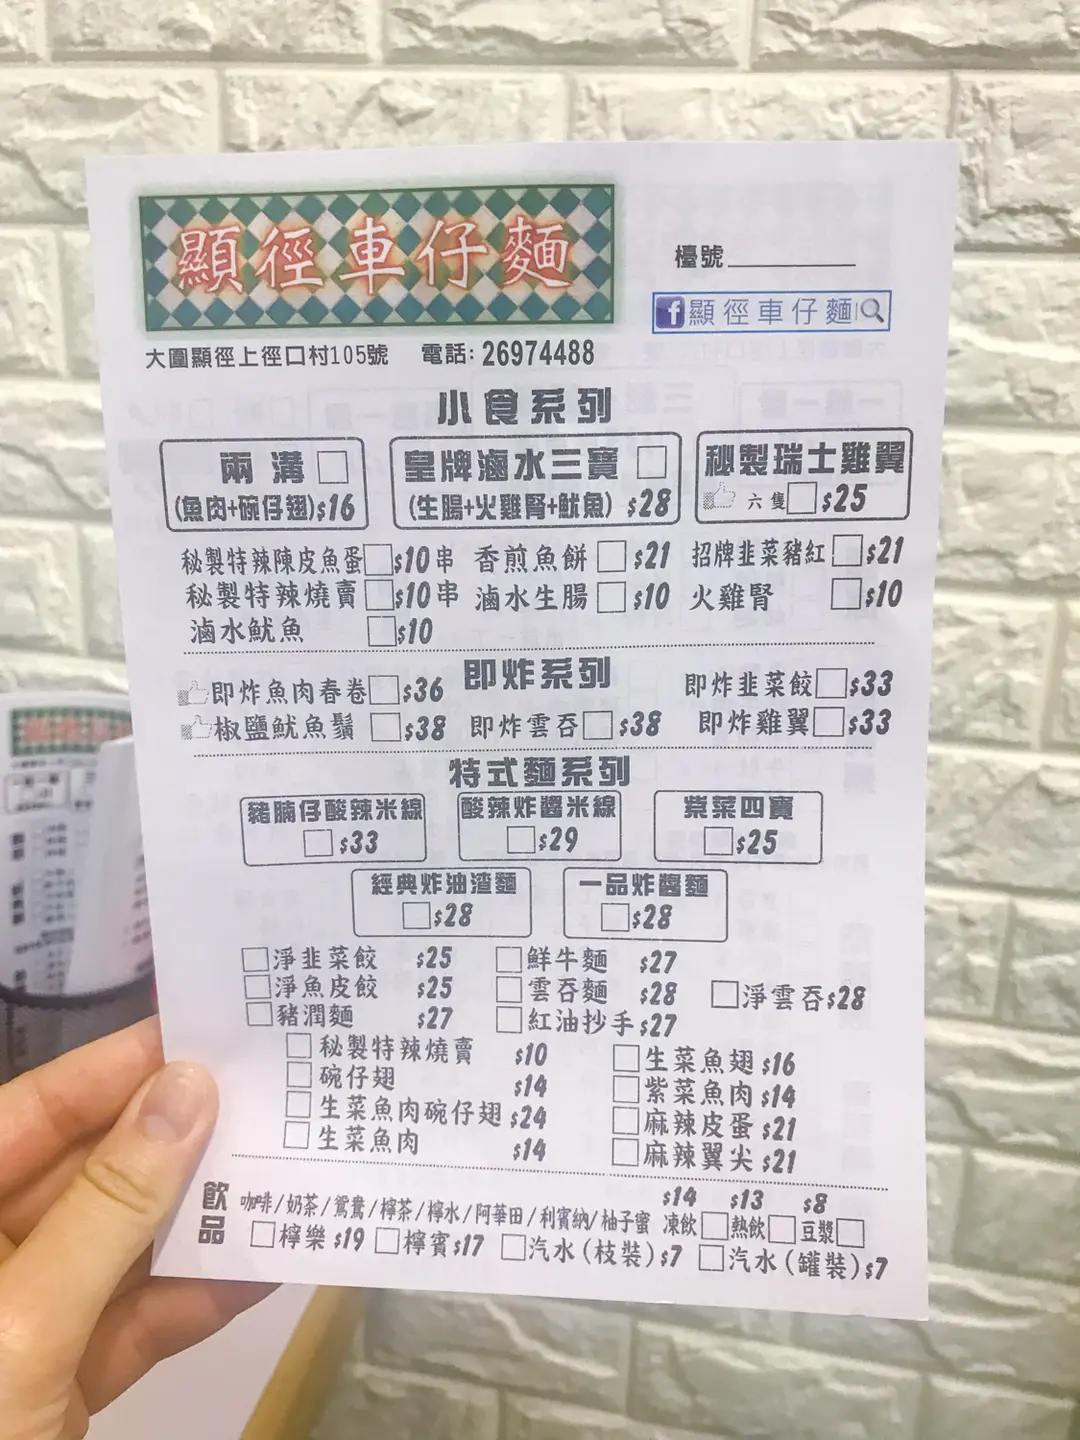 顯徑車仔麵
檯號
顯徑車仔麵
大圍顯徑上徑口村105號 電話: 26974488
小食系列
兩溝
(魚肉+碗仔翅)$16
皇牌滷水三寶
(生腸+火雞腎+魷魚) $28
秘製瑞士雞翼
六隻 $25
秘製特辣陳皮魚蛋 $10串 香煎魚餅 $21 招牌韭菜豬紅 $21
秘製特辣燒賣 $10串 滷水生腸 $10 火雞腎 $10
滷水魷魚 $10
即炸系列
即炸魚肉春卷 $36 即炸韭菜餃 $33
椒鹽魷魚鬚 $38 即炸雲吞 $38 即炸雞翼 $33
特式麵系列
豬腩仔酸辣米線
$33
酸辣炸醬米線
$29
紫菜四寶
$25
經典炸油渣麵
$28
一品炸醬麵
$28
淨韭菜餃 $25 鮮牛麵 $27
淨魚皮餃 $25 雲吞麵 $28 淨雲吞 $28
豬潤麵 $27 紅油抄手 $27
秘製特辣燒賣 $10 生菜魚翅 $16
碗仔翅 $14 紫菜魚肉 $14
生菜魚肉碗仔翅 $24 麻辣皮蛋 $21
生菜魚肉 $14 麻辣翼尖 $21
飲品
$14 $13 $8
咖啡/奶茶/鴛鴦/檸茶/檸水/阿華田/利賓納/柚子蜜 凍飲 熱飲 豆漿
檸樂 $19 檸賓 $17 汽水(枝裝) $7 汽水(罐裝) $7